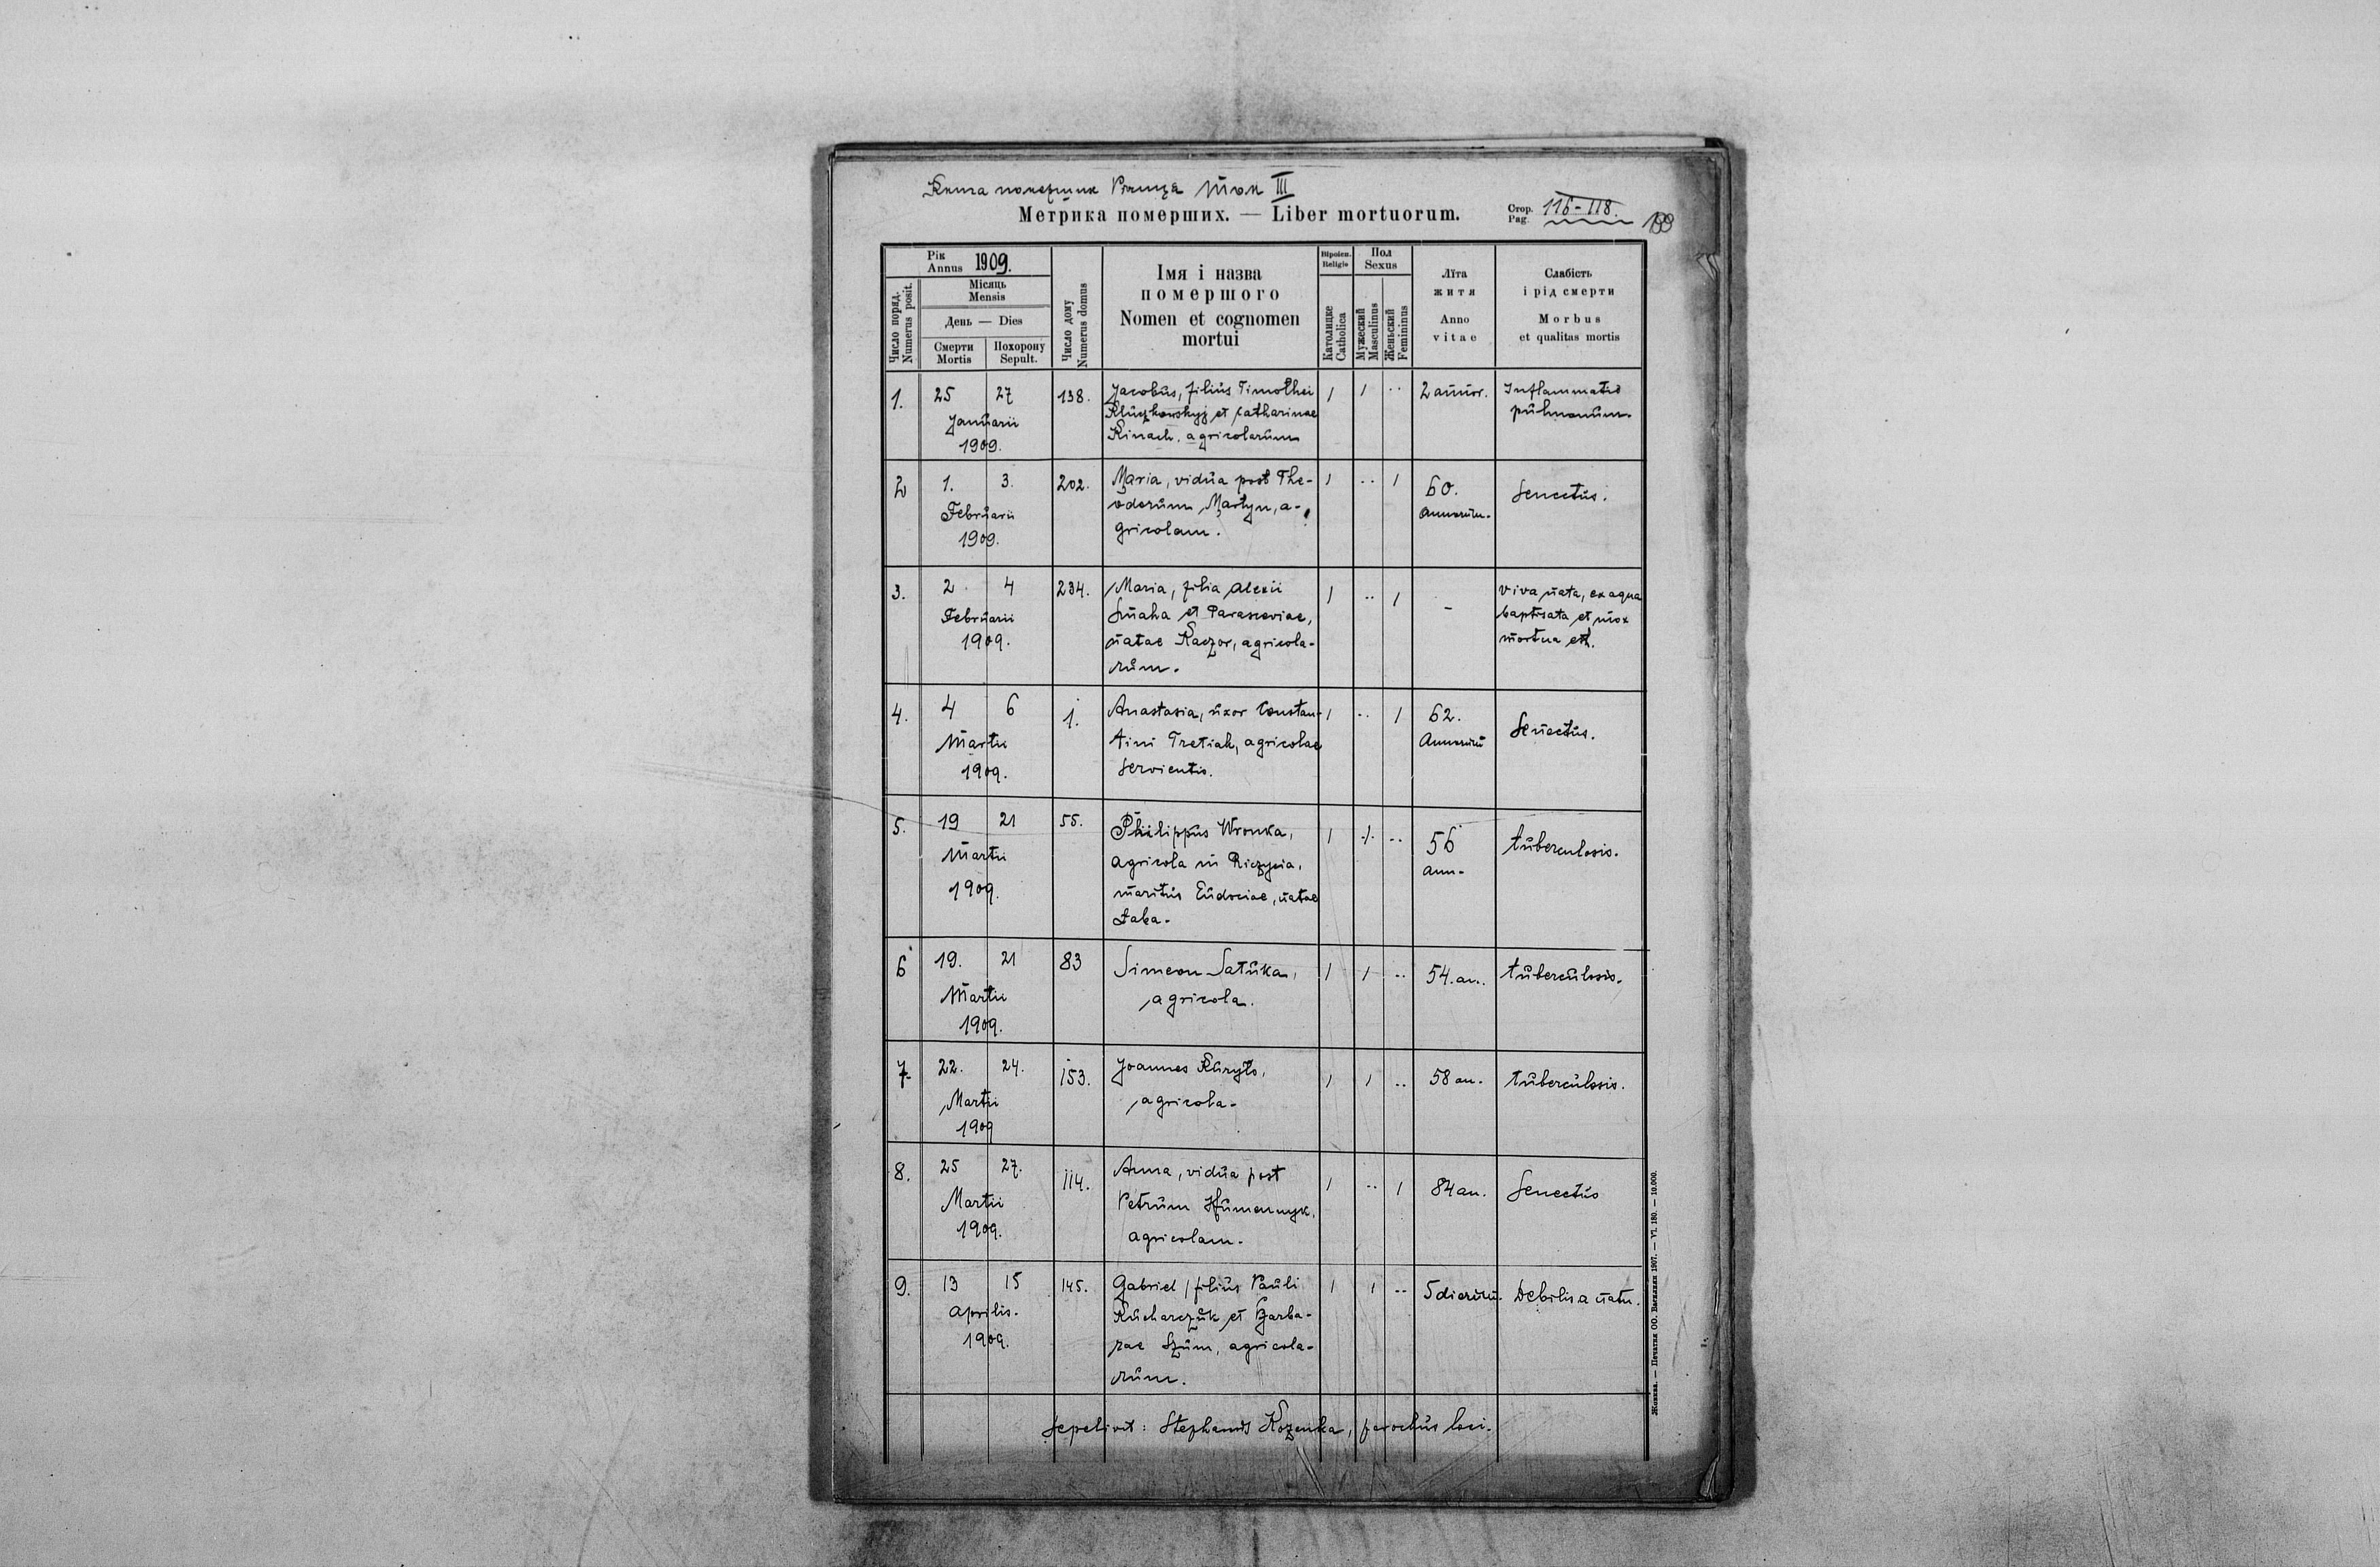 Книга помершик Річица том III
Метрика померших. — Liber mortuorum.
Стор. 116-118.
Pag.
Рік
Annus 1909.
Місяць
Mensis
День — Dies
Смерти Похорону
Mortis Sepult.
Число поряд.
Numerus posit.
Число дому
Numerus domus
Імя і назва
помершого
Nomen et cognomen
mortui
Віроісп.
Religio
Католицке
Catholica
Пол
Sexus
Мужеский
Masculinus
Женьский
Femininus
Лїта
житя
Anno
vitae
Слабість
і рід смерти
Morbus
et qualitas mortis
1. 25 27 138. Jacobus, filius Timothei / / .. 2 annor. Inflammatio
Januarii Kluczkowskyj et Catharinae pulmonum.
1909. Kinach, agricolarum
2 1. 3. 202. Maria, vidua post The- / .. / 60. Senectus.
Februarii odorum Martyn, a- Annorum.
1909. gricolam.
3. 2 4 234. Maria, filia Alexii / .. / - viva nata, ex aqua
Februarii Smaha et Parasceviae, baptisata et mox
1909. natae Kaczor, agricola- mortua est.
rum.
4. 4 6 1. Anastasia, uxor Constan- / .. / 62. Senectus.
Martii tini Tretiak, agricolae Annorum
1909. servientis.
5. 19 21 55. Philippus Wronka, / ./. .. 56 tuberculosis.
Martii agricola in Riczycia, ann.
1909. maritus Eudociae, natae
Żaba.
6 19. 21 83 Simeon Satuka, / / .. 54. an.. tuberculosis.
Martii agricola.
1909.
7. 22. 24. 153. Joannes Kuryło, / / .. 58 an. tuberculosis.
Martii agricola.
1909
8. 25 27. 114. Anna, vidua post / .. / 84 an. Senectus
Martii Petrum Humennyk,
1909. agricolam.
9. 13 15 145. Gabriel, filius Pauli / / .. 5 dierum. Debilis a natu.
Aprilis. Kucharczuk et Barba-
1909. rae Szum, agricola-
rum.
Sepelivit: Stephanus Kozenka, parochus loci.
Жовква. — Печатня ОО. Василиян 1907. — VI. 180. — 10.000.